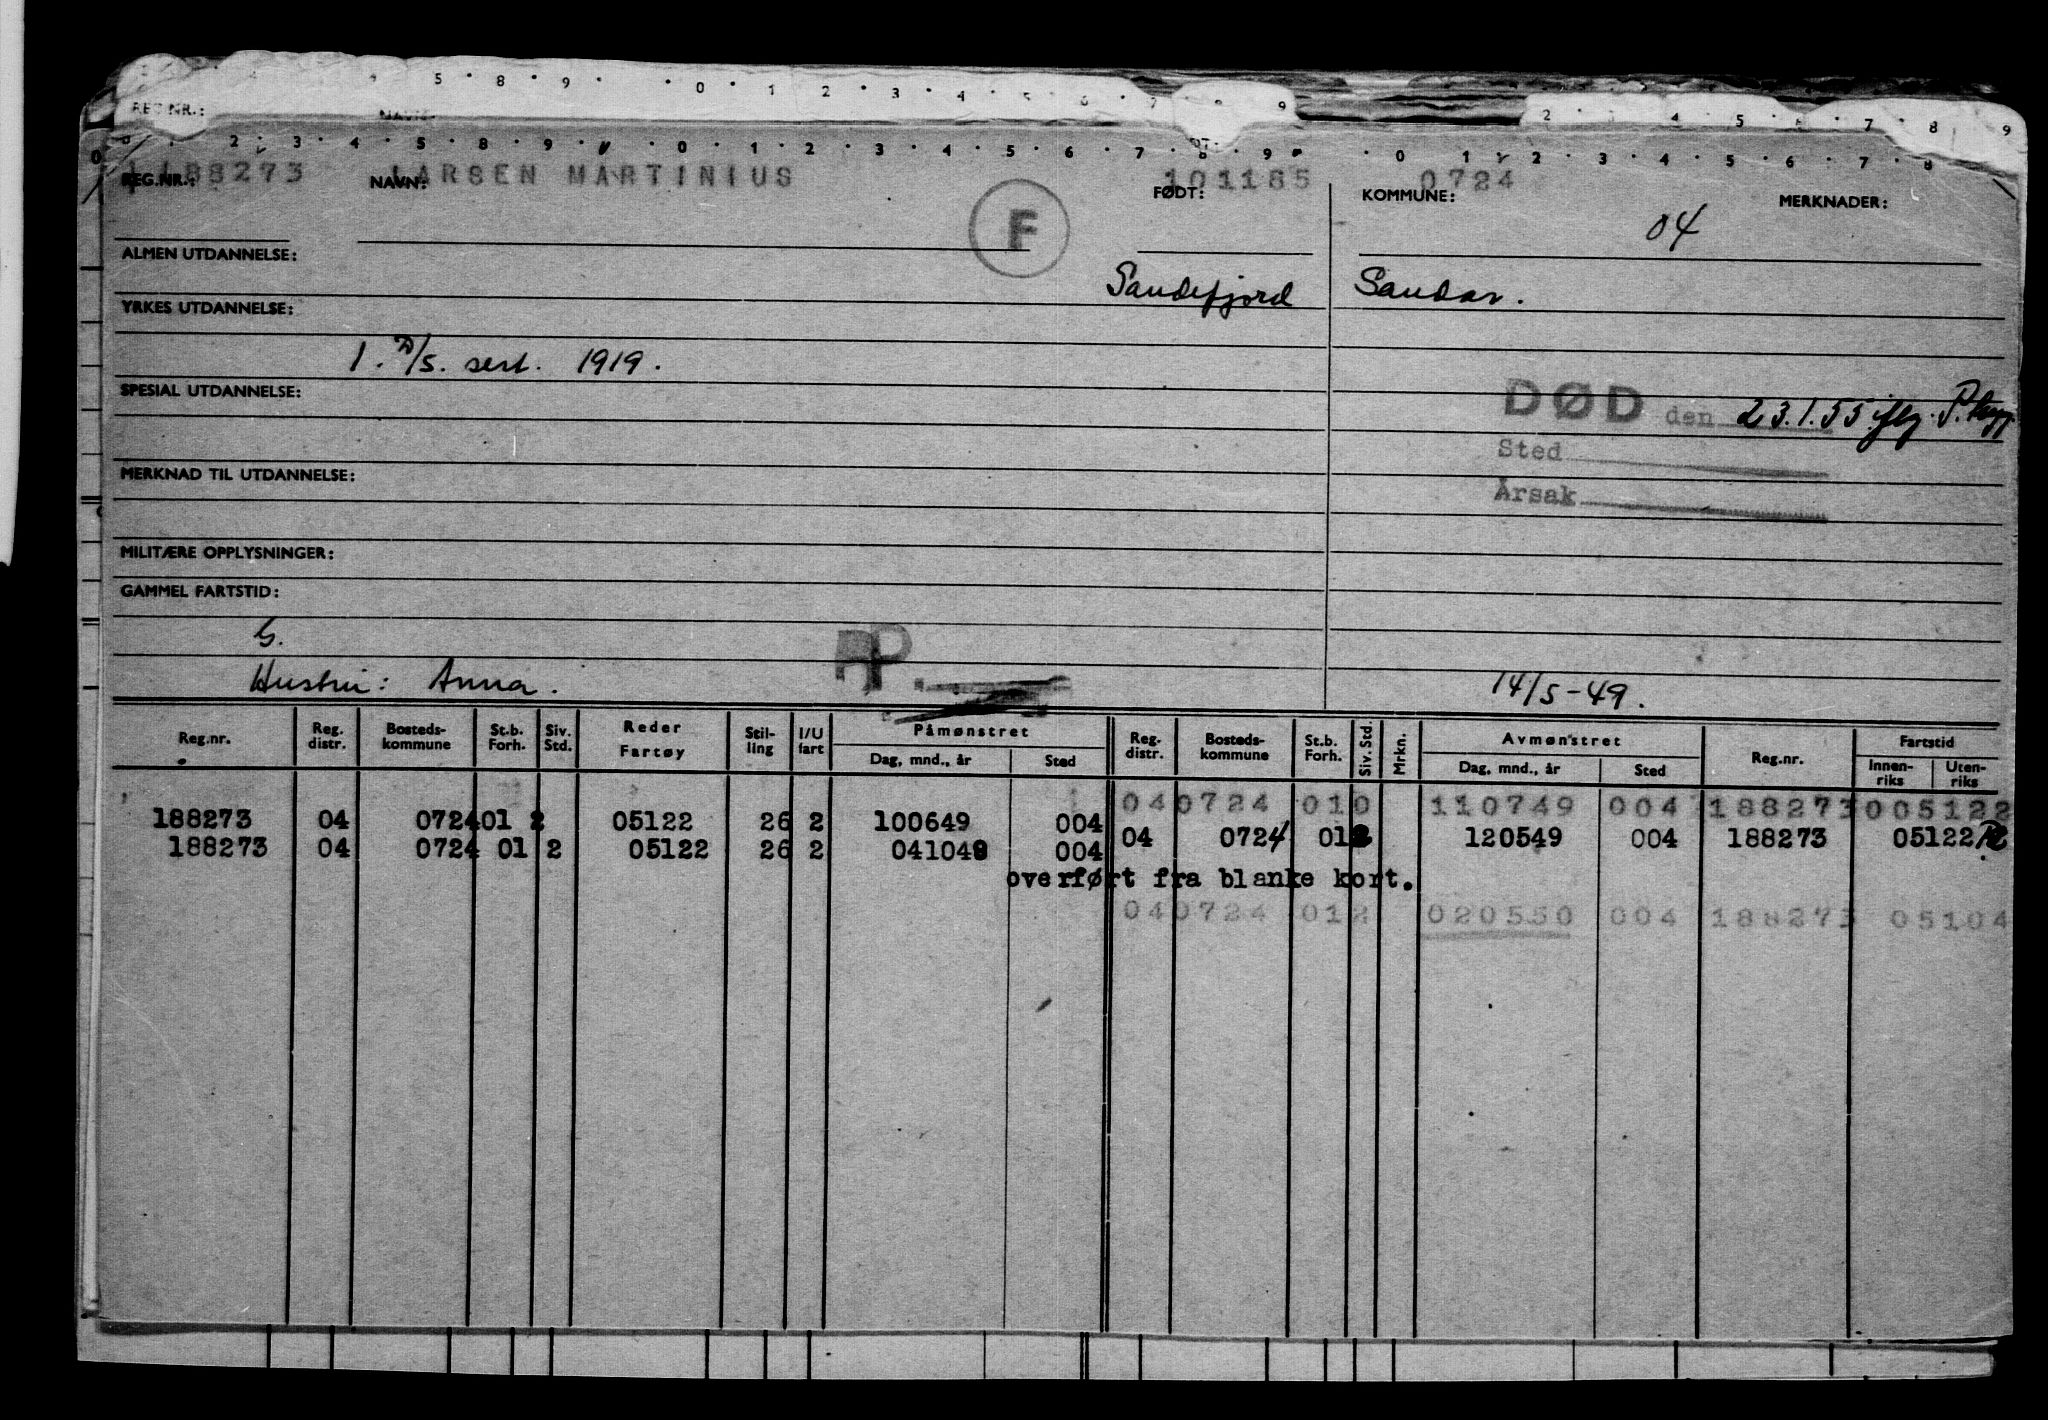 5 . 8 . 9 . 0 . 1 2 . 3 . 4 . 5 . 6 . 7 . 8 . 9 2 . 4 . 5 . 6 . 7 . 8 9
REG NR.: NAVN:
0 2 . 3 . 4 . 5 . 8 . 9 . 0 . 1 . 2 . 3 . 4 . 5 . 6 . 7 . 8 . 9 . 0 1 2 . 3 . 4 . 5 . 6 . 7 . 8
188273 LARSEN MARTINIUS 101185 0724
REG.NR.: NAVN: FØDT: KOMMUNE: MERKNADER:
F 04
ALMEN UTDANNELSE:
Sandefjord Sandar.
YRKES UTDANNELSE:
1. D/S. sert. 1919.
SPESIAL UTDANNELSE:
DØD den 23.1.55 iflg. P.trygd
Sted
Årsak
MERKNAD TIL UTDANNELSE:
MILITÆRE OPPLYSNINGER:
GAMMEL FARTSTID:
G.
Hustru: Anna. 14/5-49.
Reg.nr. Reg. distr. Bosteds-kommune St.b. Forh. Siv. Std. Reder Fartøy Stil-ling I/U fart Påmønstret Dag, mnd., år Sted Reg. distr. Bosteds-kommune St.b. Forh. Siv. Std. Mrkn. Avmønstret Dag, mnd., år Sted Reg.nr. Fartstid Innen-riks Uten-riks
040724 010 110749 004 188273 005122
188273 04 0724 01 2 05122 26 2 100649 004
04 0724 012 120549 004 188273 05122
188273 04 0724 01 2 05122 26 2 041048 004
overført fra blanke kort.
040724 012 020550 004 188273 05104